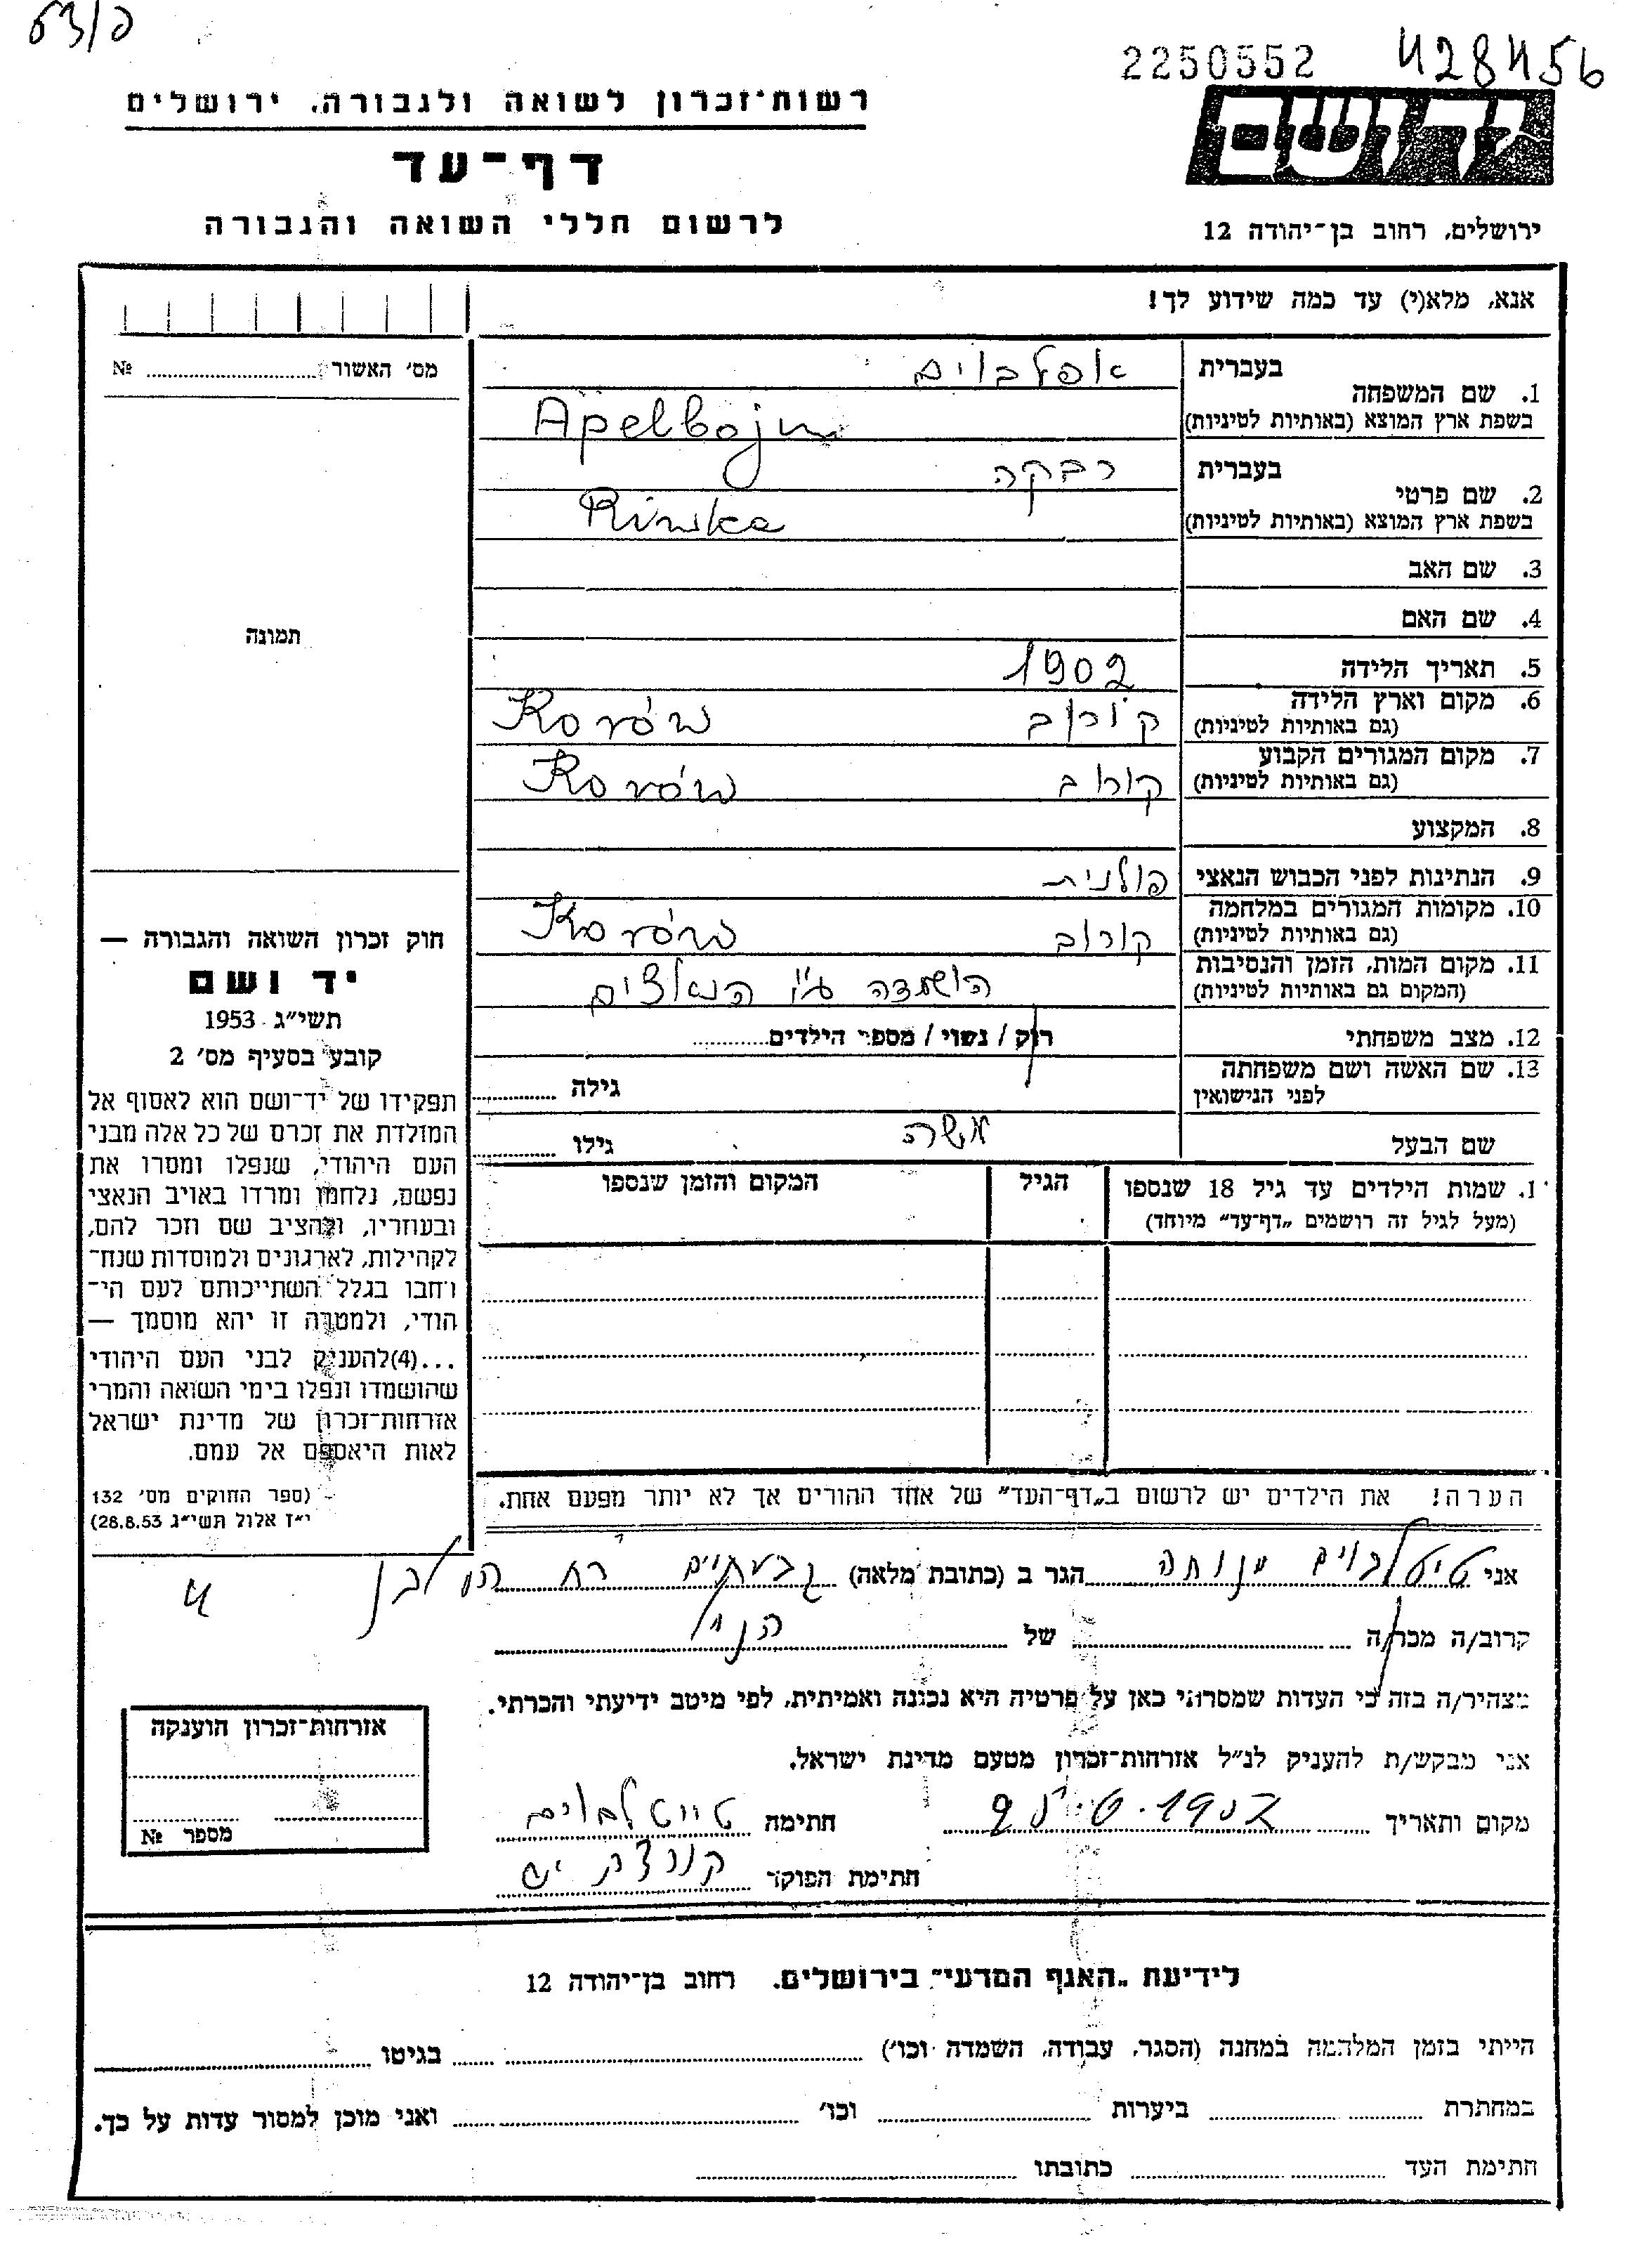 63/פ
2250552 428456
רשות־זכרון לשואה ולגבורה, ירושלים
דף־עד
לרשום חללי השואה והגבורה
יד ושם
ירושלים, רחוב בן־יהודה 12
אנא, מלא(י) עד כמה שידוע לך!
מס׳ האשור № ............
1. שם המשפחה
בעברית אפלבוים
בשפת ארץ המוצא (באותיות לטיניות) Apelbojm
2. שם פרטי
בעברית רבקה
בשפת ארץ המוצא (באותיות לטיניות) Riwka
3. שם האב
4. שם האם
תמונה
5. תאריך הלידה 1902
6. מקום וארץ הלידה
(גם באותיות לטיניות) קורוב Korów
7. מקום המגורים הקבוע
(גם באותיות לטיניות) קורוב Korów
8. המקצוע
9. הנתינות לפני הכבוש הנאצי פולנית
10. מקומות המגורים במלחמה
(גם באותיות לטיניות) קורוב Korów
11. מקום המות, הזמן והנסיבות
(המקום גם באותיות לטיניות) הושמדה ע״י הנאצים
12. מצב משפחתי רוק / נשוי / מספר הילדים............
13. שם האשה ושם משפחתה
לפני הנישואין גילה ............
שם הבעל משה גילו ............
1. שמות הילדים עד גיל 18 שנספו הגיל המקום והזמן שנספו
(מעל לגיל זה רושמים „דף־עד״ מיוחד)
הערה! את הילדים יש לרשום ב„דף־העד״ של אחד ההורים אך לא יותר מפעם אחת.
חוק זכרון השואה והגבורה —
יד ושם
תשי״ג 1953
קובע בסעיף מס׳ 2
תפקידו של יד־ושם הוא לאסוף אל
המולדת את זכרם של כל אלה מבני
העם היהודי, שנפלו ומסרו את
נפשם, נלחמו ומרדו באויב הנאצי
ובעוזריו, ולהציב שם וזכר להם,
לקהילות, לארגונים ולמוסדות שנח־
רבו בגלל השתייכותם לעם הי־
הודי, ולמטרה זו יהא מוסמך —
...(4)להעניק לבני העם היהודי
שהושמדו ונפלו בימי השואה והמרי
אזרחות־זכרון של מדינת ישראל
לאות היאספם אל עמם.
(ספר החוקים מס׳ 132
י״ז אלול תשי״ג 28.8.53)
אני טיטלבוים מנוחה הגר ב (כתובת מלאה) גבעתיים רח
4
קרוב/ה מכר/ה ............ של הנ״ל
מצהיר/ה בזה כי העדות שמסרתי כאן על פרטיה היא נכונה ואמיתית, לפי מיטב ידיעתי והכרתי.
אני מבקש/ת להעניק לנ״ל אזרחות־זכרון מטעם מדינת ישראל.
מקום ותאריך ............ חתימה טייטלבוים
חתימת הפוקד
אזרחות־זכרון הוענקה
מספר №
לידיעת „האגף המדעי״ בירושלים, רחוב בן־יהודה 12
הייתי בזמן המלחמה במחנה (הסגר, עבודה, השמדה וכו׳) ............ בגיטו ............
במחתרת ............ ביערות ............ וכו׳ ............ ואני מוכן למסור עדות על כך.
חתימת העד ............ כתובתו ............